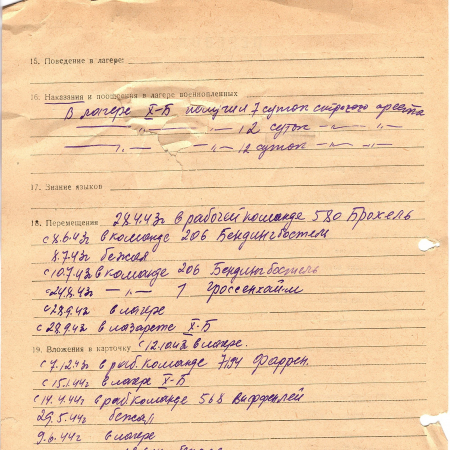 15. Поведение в лагере:
16. Наказания и поощрения в лагере военнопленных
В лагере X-Б получил 7 суток строгого ареста
—„— —„— 12 суток —„— —„—
—„— —„— 12 суток —„— —„—
17. Знание языков
18. Перемещения 28.4.43г в рабочей команде 580 Брохель
с 8.6.43г в команде 206 Бендингбостель
8.7.43г бежал
с 10.7.43г в команде 206 Бендингбостель
с 24.8.43г —„— 7 Гроссенхайм
в лагере
с 28.9.43г в лазарете X-Б
с 12.10.43г в лагере.
19. Вложения в карточку
с 7.12.43г в раб. команде 7194 Фаррен.
с 15.1.44г в лагере X-Б
с 14.4.44г в раб команде 568 Виффелей
29.5.44г бежал
9.6.44г в лагере